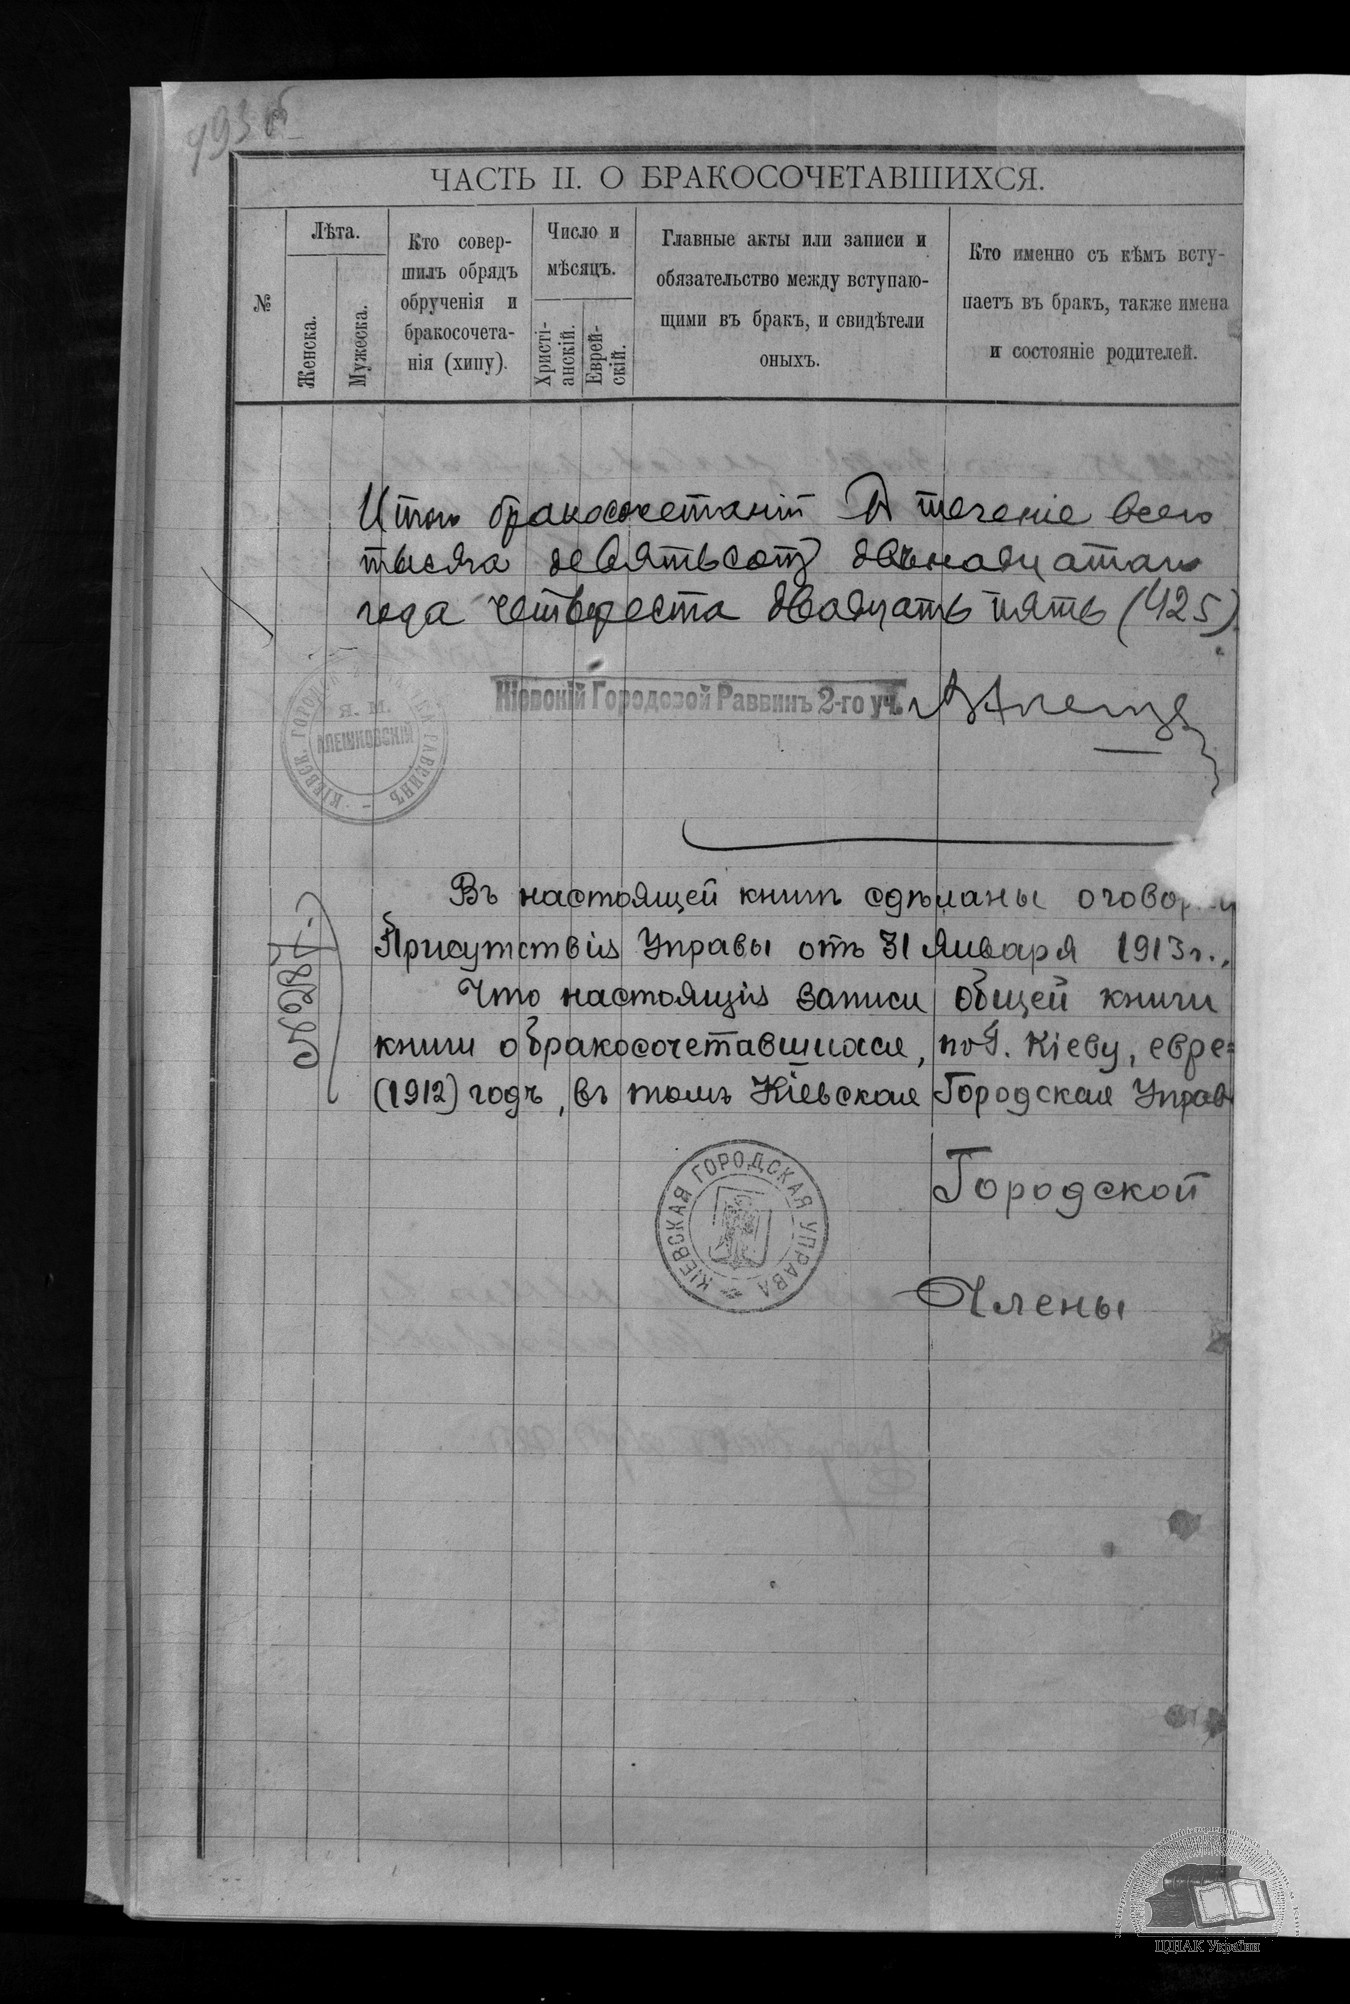 ЧАСТЬ II. О БРАКОСОЧЕТАВШИХСЯ.
№
Лѣта.
Женска.
Мужеска.
Кто совер-
шилъ обрядъ
обрученія и
бракосочета-
нія (хипу).
Число и
мѣсяцъ.
Христі-
анскій.
Еврей-
скій.
Главные акты или записи и
обязательство между вступаю-
щими въ бракъ, и свидѣтели
оныхъ.
Кто именно съ кѣмъ всту-
паетъ въ бракъ, также имена
и состояніе родителей.
Итого бракосочетаній В теченіе всего
тысяча девятьсотъ двѣнадцатаго
года четвереста двадцать пять (425)
Кіевскій Городовой Раввинъ 2-го уч.
КІЕВСК. ГОРОДСК РАВВИНЪ
Я. М.
АЛЕШКОВСКІЙ
Въ настоящей книгѣ сдѣланы оговорки
Присутствія Управы отъ 31 Января 1913 г.,
Что настоящія записи общей книги
книги о бракосочетавшихся, по г. Кіеву, евре=
(1912) годъ, въ томъ Кіевская Городская Управ
КІЕВСКАЯ ГОРОДСКАЯ УПРАВА
Городской
Члены
ЦДІАК України